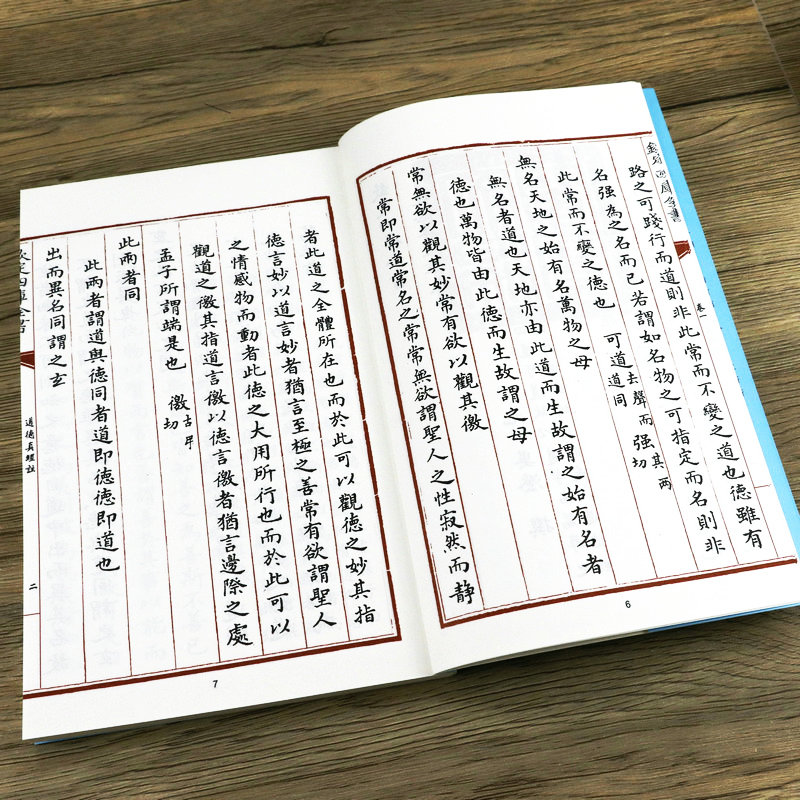 欽定四庫全書
卷一
路之可踐行而道則非此常而不變之道也德雖有
名强為之名而已若謂如名物之可指定而名則非
此常而不變之德也 可道道同去聲而强其两切
無名天地之始有名萬物之母
無名者道也天地亦由此道而生故謂之始有名者
德也萬物皆由此德而生故謂之母
常無欲以觀其妙常有欲以觀其徼
常即常道常名之常常無欲謂聖人之性寂然而静
6
者此道之全體所在也而於此可以觀德之妙其指
德言妙以道言妙者猶言至極之善常有欲謂聖人
之情感物而動者此德之大用所行也而於此可以
觀道之徼其指道言徼以德言徼者猶言邊際之處
孟子所謂端是也 徼古弔切
此兩者同
此兩者謂道與德同者道即德德即道也
出而異名同謂之玄
欽定四庫全書
道德真經註
二
7